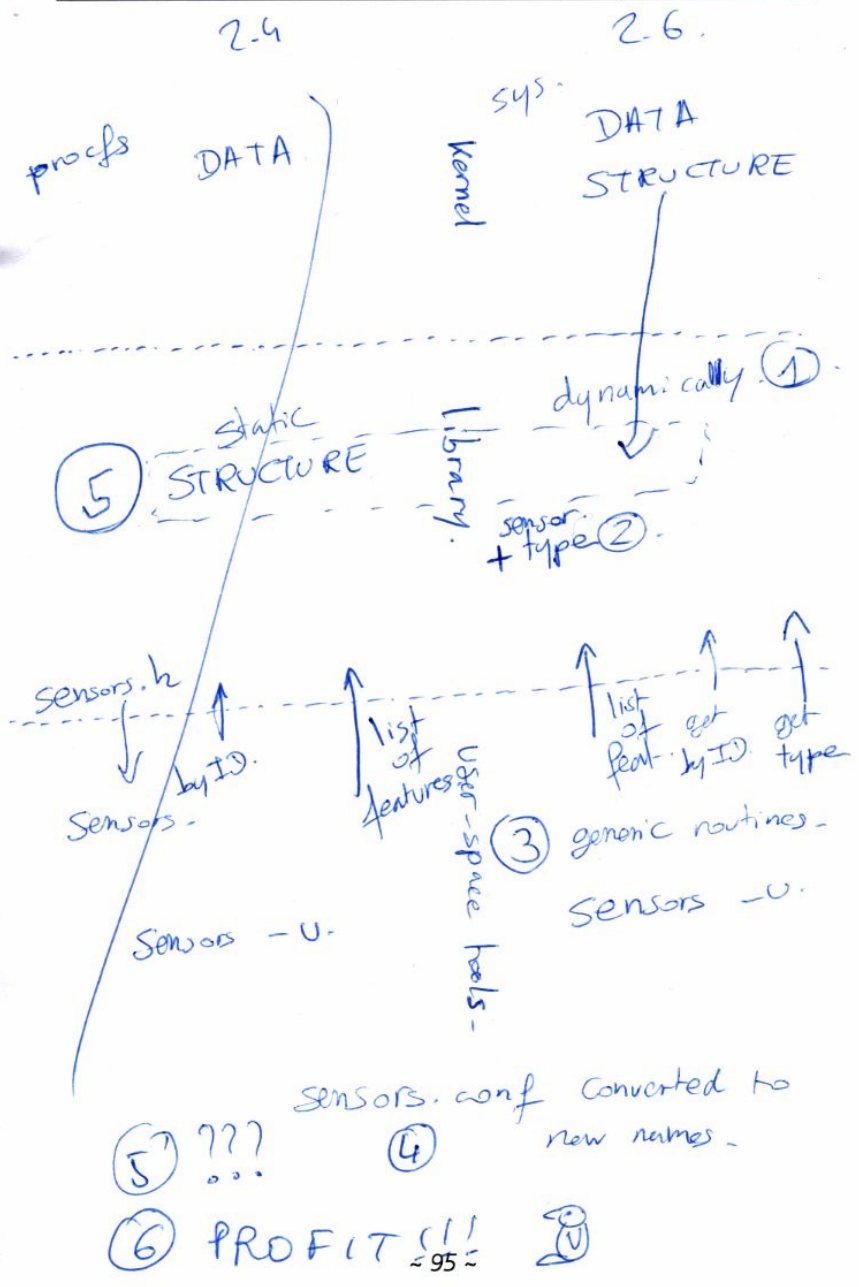 2.4
2.6.
procfs
DATA
Kernel
sys.
DATA
STRUCTURE
dynamically. ①.
⑤
static
STRUCTURE
library.
sensor.
+ type ②.
sensors.h
Sensors.
by ID.
list
of
features
list
of
feat.
get
by ID.
get
type
user-space tools-
③ generic routines-
Sensors -U.
Sensors -U.
sensors.conf converted to
④ new names-
⑤ ???
⑥ PROFIT!!!
~ 95 ~